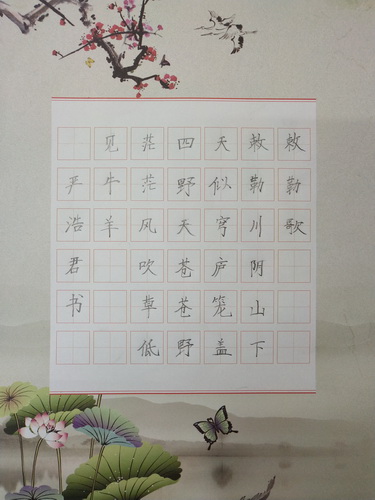 敕勒歌
敕勒川阴山下
天似穹庐笼盖
四野天苍苍野
茫茫风吹草低
见牛羊
严浩君书